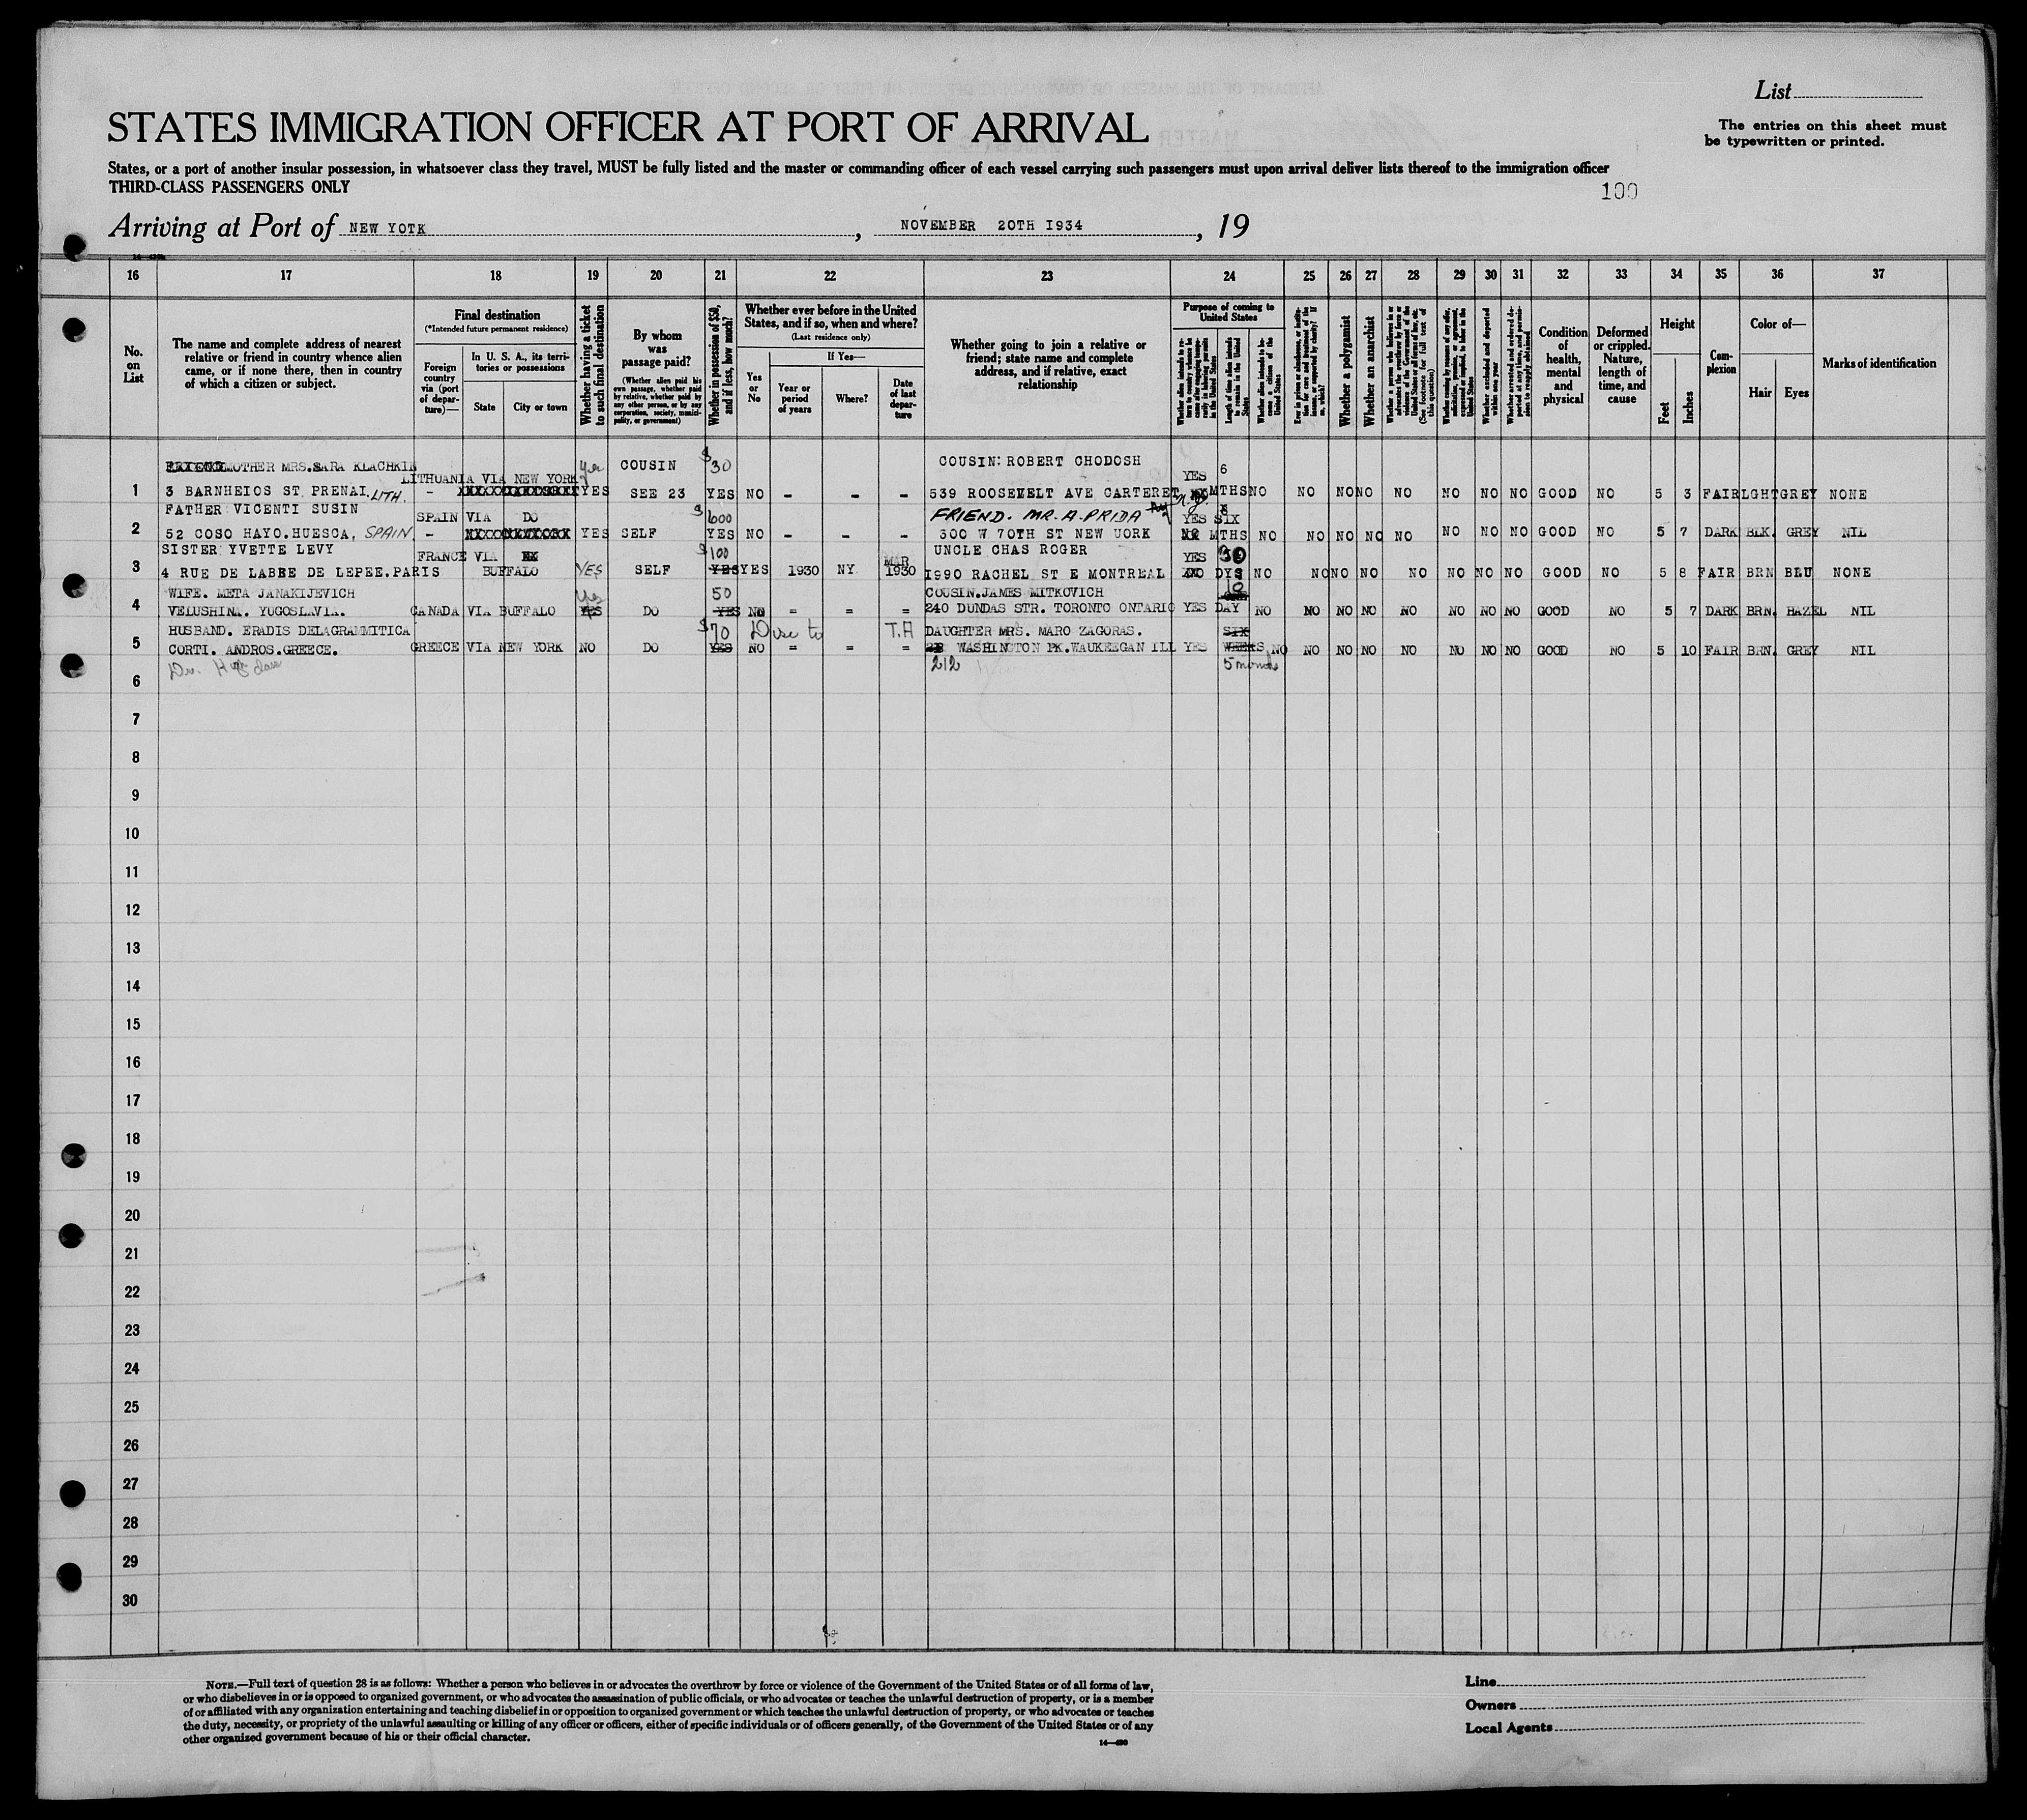 List
STATES IMMIGRATION OFFICER AT PORT OF ARRIVAL
The entries on this sheet must
be typewritten or printed.
States, or a port of another insular possession, in whatsoever class they travel, MUST be fully listed and the master or commanding officer of each vessel carrying such passengers must upon arrival deliver lists thereof to the immigration officer
THIRD-CLASS PASSENGERS ONLY
100
Arriving at Port of NEW YOTK, NOVEMBER 20TH 1934, 19
16 17 18 19 20 21 22 23 24 25 26 27 28 29 30 31 32 33 34 35 36 37
No. on List
The name and complete address of nearest relative or friend in country whence alien came, or if none there, then in country of which a citizen or subject.
Final destination
(*Intended future permanent residence)
Foreign country via (port of departure)—
In U. S. A., its territories or possessions
State City or town
Whether having a ticket to such final destination
By whom was passage paid?
(Whether alien paid his own passage, whether paid by relative, whether paid by any other person, or by any corporation, society, municipality, or government)
Whether in possession of $50, and if less, how much?
Whether ever before in the United States, and if so, when and where?
(Last residence only)
Yes or No
If Yes—
Year or period of years
Where?
Date of last departure
Whether going to join a relative or friend; state name and complete address, and if relative, exact relationship
Purpose of coming to United States
Length of time alien intends to remain in the United States
Whether alien intends to become a citizen of the United States
Whether a polygamist
Whether an anarchist
Condition of health, mental and physical
Deformed or crippled. Nature, length of time, and cause
Height
Feet Inches
Complexion
Color of—
Hair Eyes
Marks of identification
MOTHER MRS.SARA KLACHKIN LITHUANIA VIA NEW YORK yes COUSIN $30 COUSIN: ROBERT CHODOSH YES 6
1 3 BARNHEIOS ST PRENAI. LITH. - YES SEE 23 YES NO - - - 539 ROOSEVELT AVE CARTERET N.J. MTHS NO NO NO NO NO NO NO NO GOOD NO 5 3 FAIR LGHT GREY NONE
FATHER VICENTI SUSIN SPAIN VIA DO $600 FRIEND. MR. A. PRIDA YES SIX
2 52 COSO HAYO.HUESCA, SPAIN. - YES SELF YES NO - - - 300 W 70TH ST NEW UORK MTHS NO NO NO NO NO NO NO NO GOOD NO 5 7 DARK BLK. GREY NIL
SISTER YVETTE LEVY FRANCE VIA $100 MAR UNCLE CHAS ROGER YES 30
3 4 RUE DE LABBE DE LEPEE.PARIS BUFFALO YES SELF YES YES 1930 NY 1930 1990 RACHEL ST E MONTREAL DYS NO NO NO NO NO NO NO NO GOOD NO 5 8 FAIR BRN BLU NONE
WIFE. META JANAKIJEVICH yes 50 COUSIN.JAMES MITKOVICH 10
4 VELUSHINA. YUGOSLAVIA. CANADA VIA BUFFALO YES DO YES NO = = = 240 DUNDAS STR. TORONTO ONTARIO YES DAY NO NO NO NO NO NO NO NO GOOD NO 5 7 DARK BRN. HAZEL NIL
HUSBAND. ERADIS DELAGRAMMITICA $70 T.A DAUGHTER MRS. MARO ZAGORAS. SIX
5 CORTI. ANDROS.GREECE. GREECE VIA NEW YORK NO DO YES NO = = = WASHINGTON PK.WAUKEEGAN ILL YES WEEKS NO NO NO NO NO NO NO NO GOOD NO 5 10 FAIR BRN. GREY NIL
212 5 months
6
7
8
9
10
11
12
13
14
15
16
17
18
19
20
21
22
23
24
25
26
27
28
29
30
NOTE.—Full text of question 28 is as follows: Whether a person who believes in or advocates the overthrow by force or violence of the Government of the United States or of all forms of law,
or who disbelieves in or is opposed to organized government, or who advocates the assassination of public officials, or who advocates or teaches the unlawful destruction of property, or is a member
of or affiliated with any organization entertaining and teaching disbelief in or opposition to organized government or which teaches the unlawful destruction of property, or who advocates or teaches
the duty, necessity, or propriety of the unlawful assaulting or killing of any officer or officers, either of specific individuals or of officers generally, of the Government of the United States or of any
other organized government because of his or their official character.
14—430
Line
Owners
Local Agents